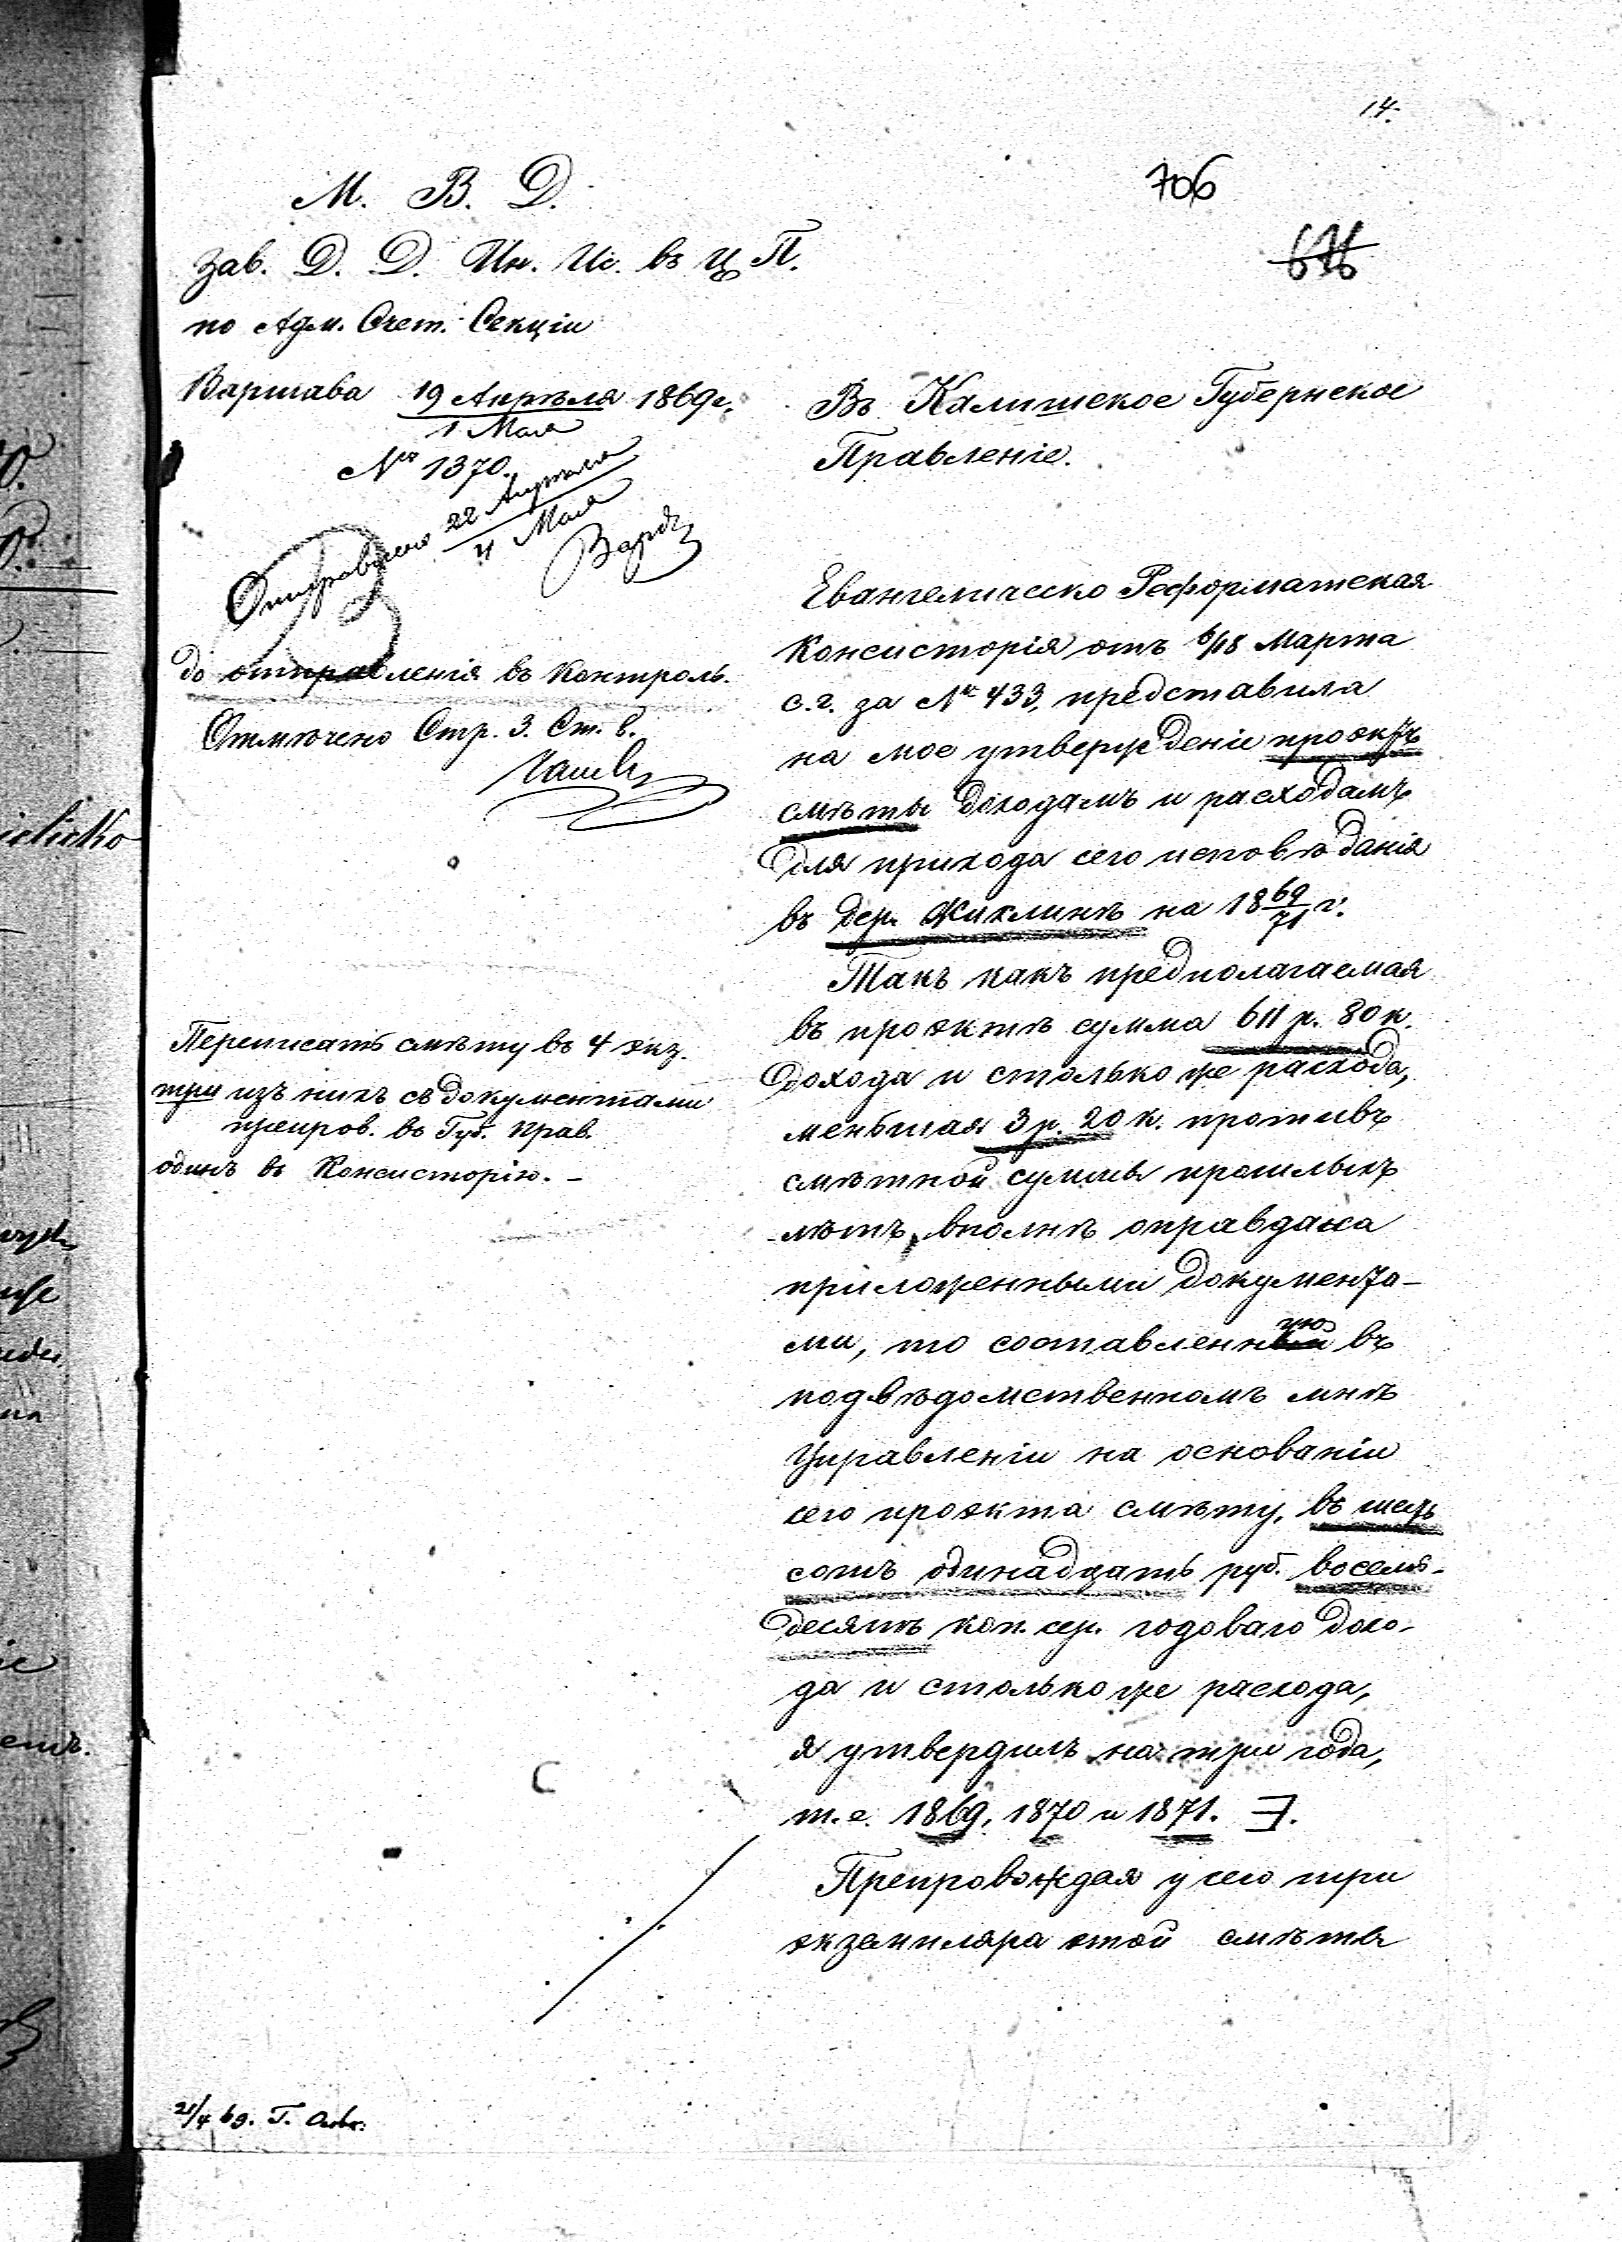 14.
706
676
М. В. Д.
Зав. Д. Д. Ин. Ис. въ Ц. П.
по Адм. Счет. Секціи
Варшава 19 Апрѣля 1869 г.
1 Мая
№ 1370.
Отправлено 22 Апрѣля
4 Мая
до отправленія въ контроль.
Отмѣчено Стр. 3. Ст. 6.
Переписать смѣту въ 4 экз.
три изъ нихъ съ документами
препров. въ Губ. Прав.
одинъ въ Консисторію. –
Въ Калишское Губернское
Правленіе.
Евангелическо Реформатская
Консисторія отъ 6/18 Марта
с. г. за № 433, представила
на мое утвержденіе проэктъ
смѣты доходамъ и расходамъ
для прихода сего исповѣданія
въ дер. Жихлинѣ на 18 69/71 г.
Такъ какъ предполагаемая
въ проэктѣ сумма 611 р. 80 к.
дохода и столько же расхода,
меньшая 3 р. 20 к. противъ
смѣтной суммы прошлыхъ
лѣтъ, вполнѣ оправдана
приложенными документа–
ми, то составленную въ
подвѣдомственномъ мнѣ
Управленіи на основаніи
сего проэкта смѣту, въ шесть
сотъ одинадцать руб. восемь–
десятъ коп. сер. годоваго дохо–
да и столько же расхода,
я утвердилъ на три года,
т. е. 1869, 1870 и 1871.
Препровождая у сего три
экземпляра этой смѣты
21/4 69.